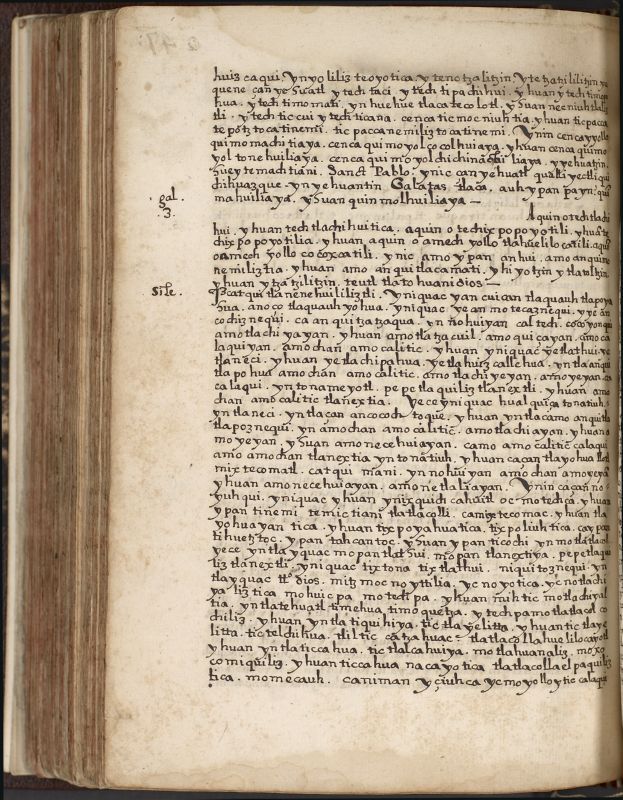 huiz ca qui. yn yoliliz teoyotica ytenc tzalitzin, yte tzatzililitzin ye
quene can ye ytech taci
hua. ytech timo mati. yn huehue tlacatecolotl.
tli. ytech tic cui ytech ticana. cenca tic moc niuhtia. yhuan ticpacca
tepotztocatinemi. tic pacca nemiliztocatinemi. ynin cenca yyollo
quimomachitiaya. cenca quimoyolcocolhuiaya. yhuan cenca quimo
yoltonehuiliaya. cenca quimoyolchichinaliaya. yyehuatzin,
huey temachtiani. Sanct Pablo. ynic can yehuatl qualli yectli qui
chihuazque. yn yehuantin Galatas tlaca. auh ypan
mahuiliaya, yhuan quinmolhuiliaya —
.gal.
.3.
Aquin otechtlachi
hui. yhuan techtlachihuitica. aquin otechixpopoyotili.
chixpopoyotilia. yhuan aquin oamech yollotlahuelilocatili.
oamech yollo coçoxcatili. ynic amo ypan anhui. amo anquine
nemiliztia. yhuan amo anquitlacamati. yhiyotzin ytlatoltzin
yhuan ytzatzilitzin. teutl tlatohuani dios —
Sile.
catqui tlanenehuililiztli. yniquac yancuican tlaquauhtlapoya
hua. anoço tlaquauhyohua. yniquac ye anmotecaznequi.
cochiznequi. ca anquitzatzaqua. yn nohuiyan caltech.
amo tlachiyayan. yhuan amotlatzacuil. amo quiçayan. amo ca
laquiyan. amochan amocalitic. yhuan yniquac ye tlathui. ye
tlaneci. yhuan ye tlachipahua. ye tlahuizcallehua. yntla
tlapohua amochan amo calitic. amotlachiyeyan. amoyeyan.
calaqui. yn tonameyotl. pepetlaquiliz tlanextli. yhuan amo
chan amocalitic tlanextia. yece yniquac hualquiça tonatiuh.
yn tlaneci. yntlacan ancocochtoque. yhuan yntlacamo anquitla
tlapoznequi. yn amochan amo calitic. amotlachiayan. yhuan a
moyeyan, yhuan amo necehuiayan. camo amo calitic calaqui
amo amochan tlanextia yn tonatiuh, yhuan cacan tlayohuatlotl
mixtecomatl. catqui mani. yn nohuiyan amochan amoyeya
yhuan amo necehuiayan. amonetlaliayan. ynin çaçan no
yuhqui. yniquac yhuan ynixquich cahuitl oc motechca, yhuan
ypan tinemi temictiani tlatlacolli. camixtecomac. yhuan tla
yohuayan tica. yhuan tixpoyahuatica. tixpoliuhtica.
tihuetztoc. ypan tahcantoc. yhuan ypan ticochi yn motlatlacol
yece yntla yquac mopan tlathui. mopan tlanextiya. pepetlaqui
liz tlanextli. yniquac tixtona tixtlathui. niquitoznequi. yn
tlayquac tto dios. mitzmocnoyttilia. yc noyotica. yc notlachi
yaliztica mohuicpa motechpa. yhuan
tia. yntla tehuatl timehua, timoquetza. ytechpa motlatlacol
chiliz. yhuan yntla tiquihiya. yhuan tictlaye
litta. tictelchihua. tlatlacollahuelilocayotl
yhuan yntla ticcahua. tictlalcahuiya. motlahuanaliz. moxo
comiquiliz. yhuan ticcahua nacayotica tlatlacollaelpaquiliz
tica. momecauh. caniman yciuhca yc moyolloytic calaqui